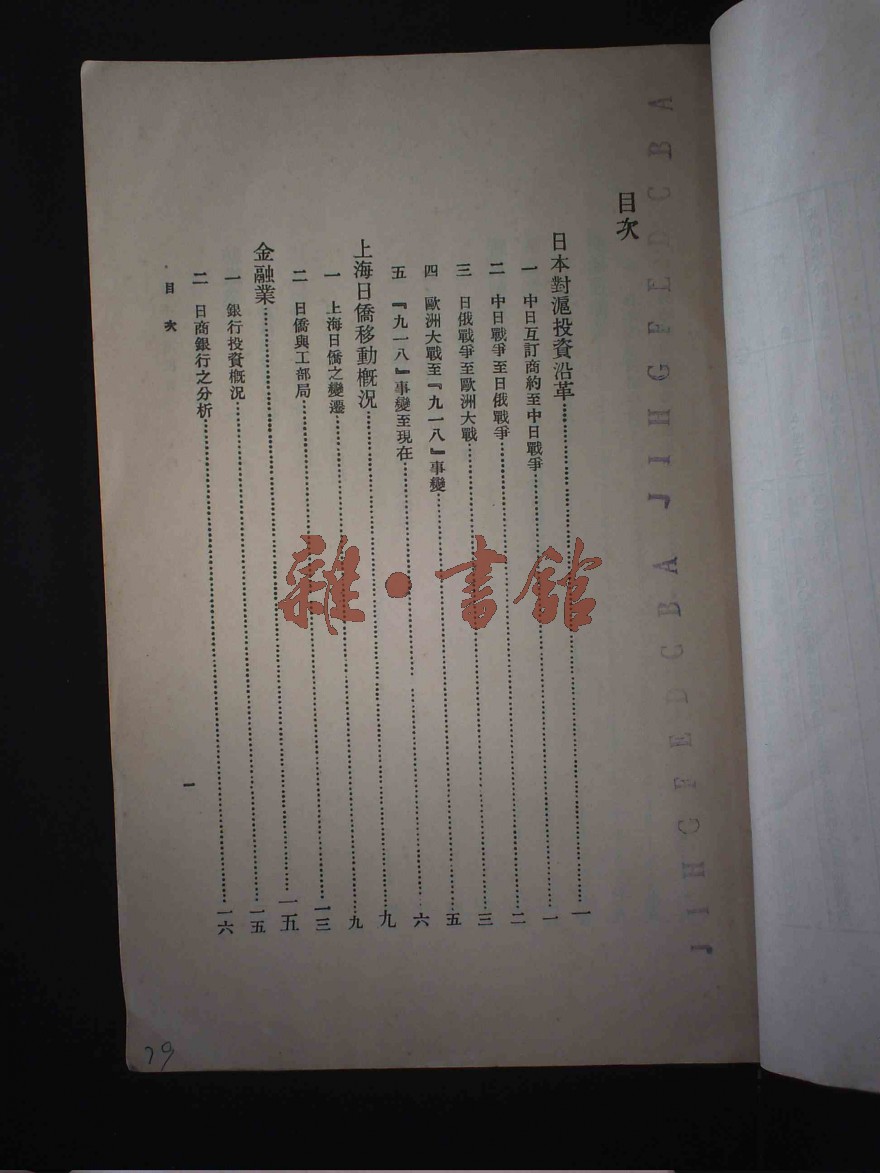 目次
日本對滬投資沿革……一
一　中日互訂商約至中日戰爭……一
二　中日戰爭至日俄戰爭……二
三　日俄戰爭至歐洲大戰……三
四　歐洲大戰至『九一八』事變……五
五　『九一八』事變至現在……六
上海日僑移動概況……九
一　上海日僑之變遷……九
二　日僑與工部局……一三
金融業……一五
一　銀行投資概況……一五
二　日商銀行之分析……一六
目　次
一
A B C D E F G H I J
A B C D E F G H I J
雜·書館
79